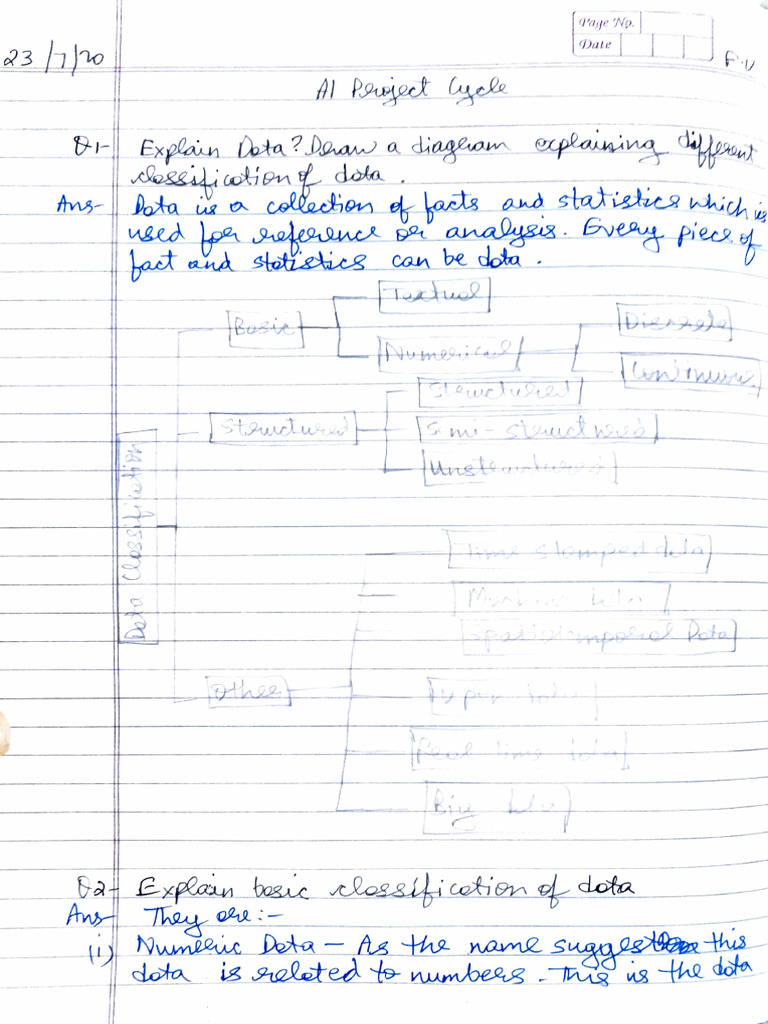 Page No.
Date
23/7/20
AI Project Cycle
Q1- Explain Data? Draw a diagram explaining different
classification of data.
Ans- Data is a collection of facts and statistics which is
used for reference or analysis. Every piece of
fact and statistics can be data.
Textual
Basic
Discrete
Numerical
Continuous
Structured
Structured
Semi-structured
Unstructured
Data Classification
Time stamped data
Machine data
Spatiotemporal Data
Other
Open data
Real time data
Big data
Q2- Explain basic classification of data
Ans- They are:-
(i) Numeric Data - As the name suggest this
data is related to numbers. This is the data